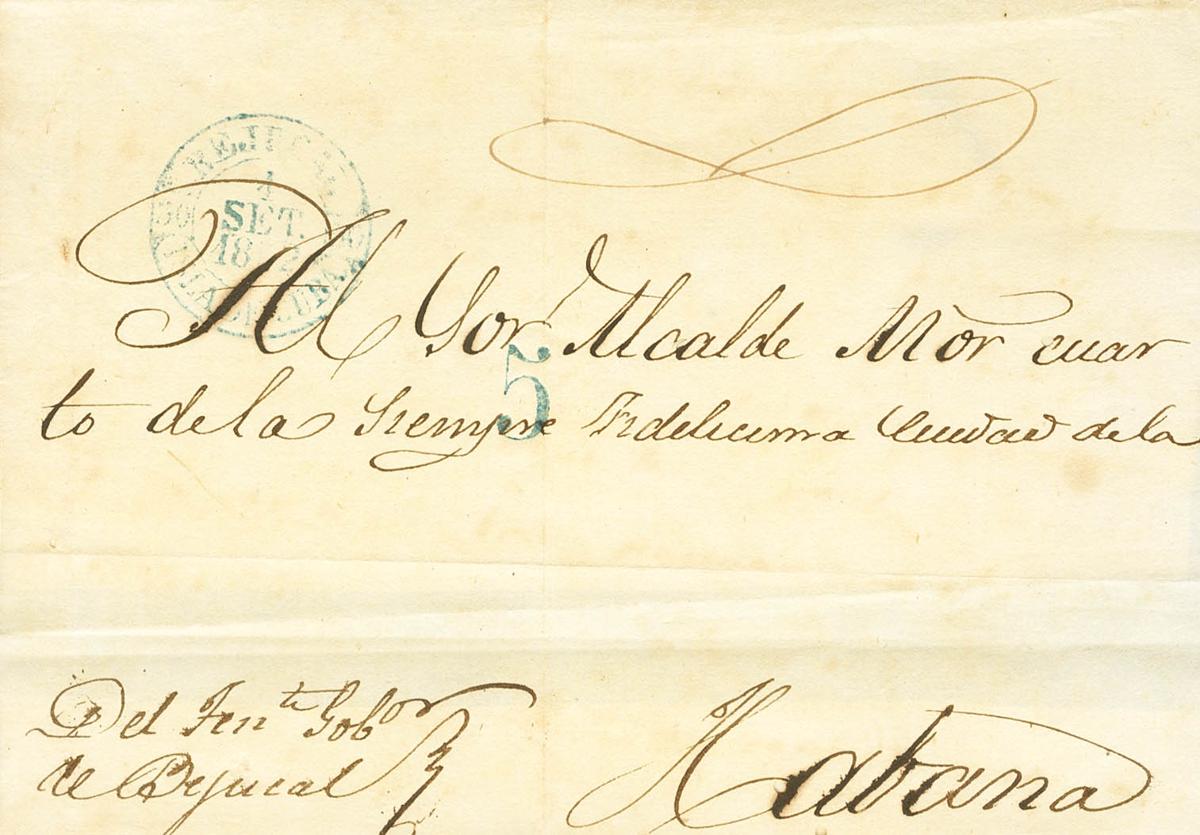 BEJUCAL
1
SET.
18 2
Al Sor Alcalde Mor cuar
5
to de la Siempre Fidelicima Ciudad de la
Del Tente Gobor
de Bejucal
Habana